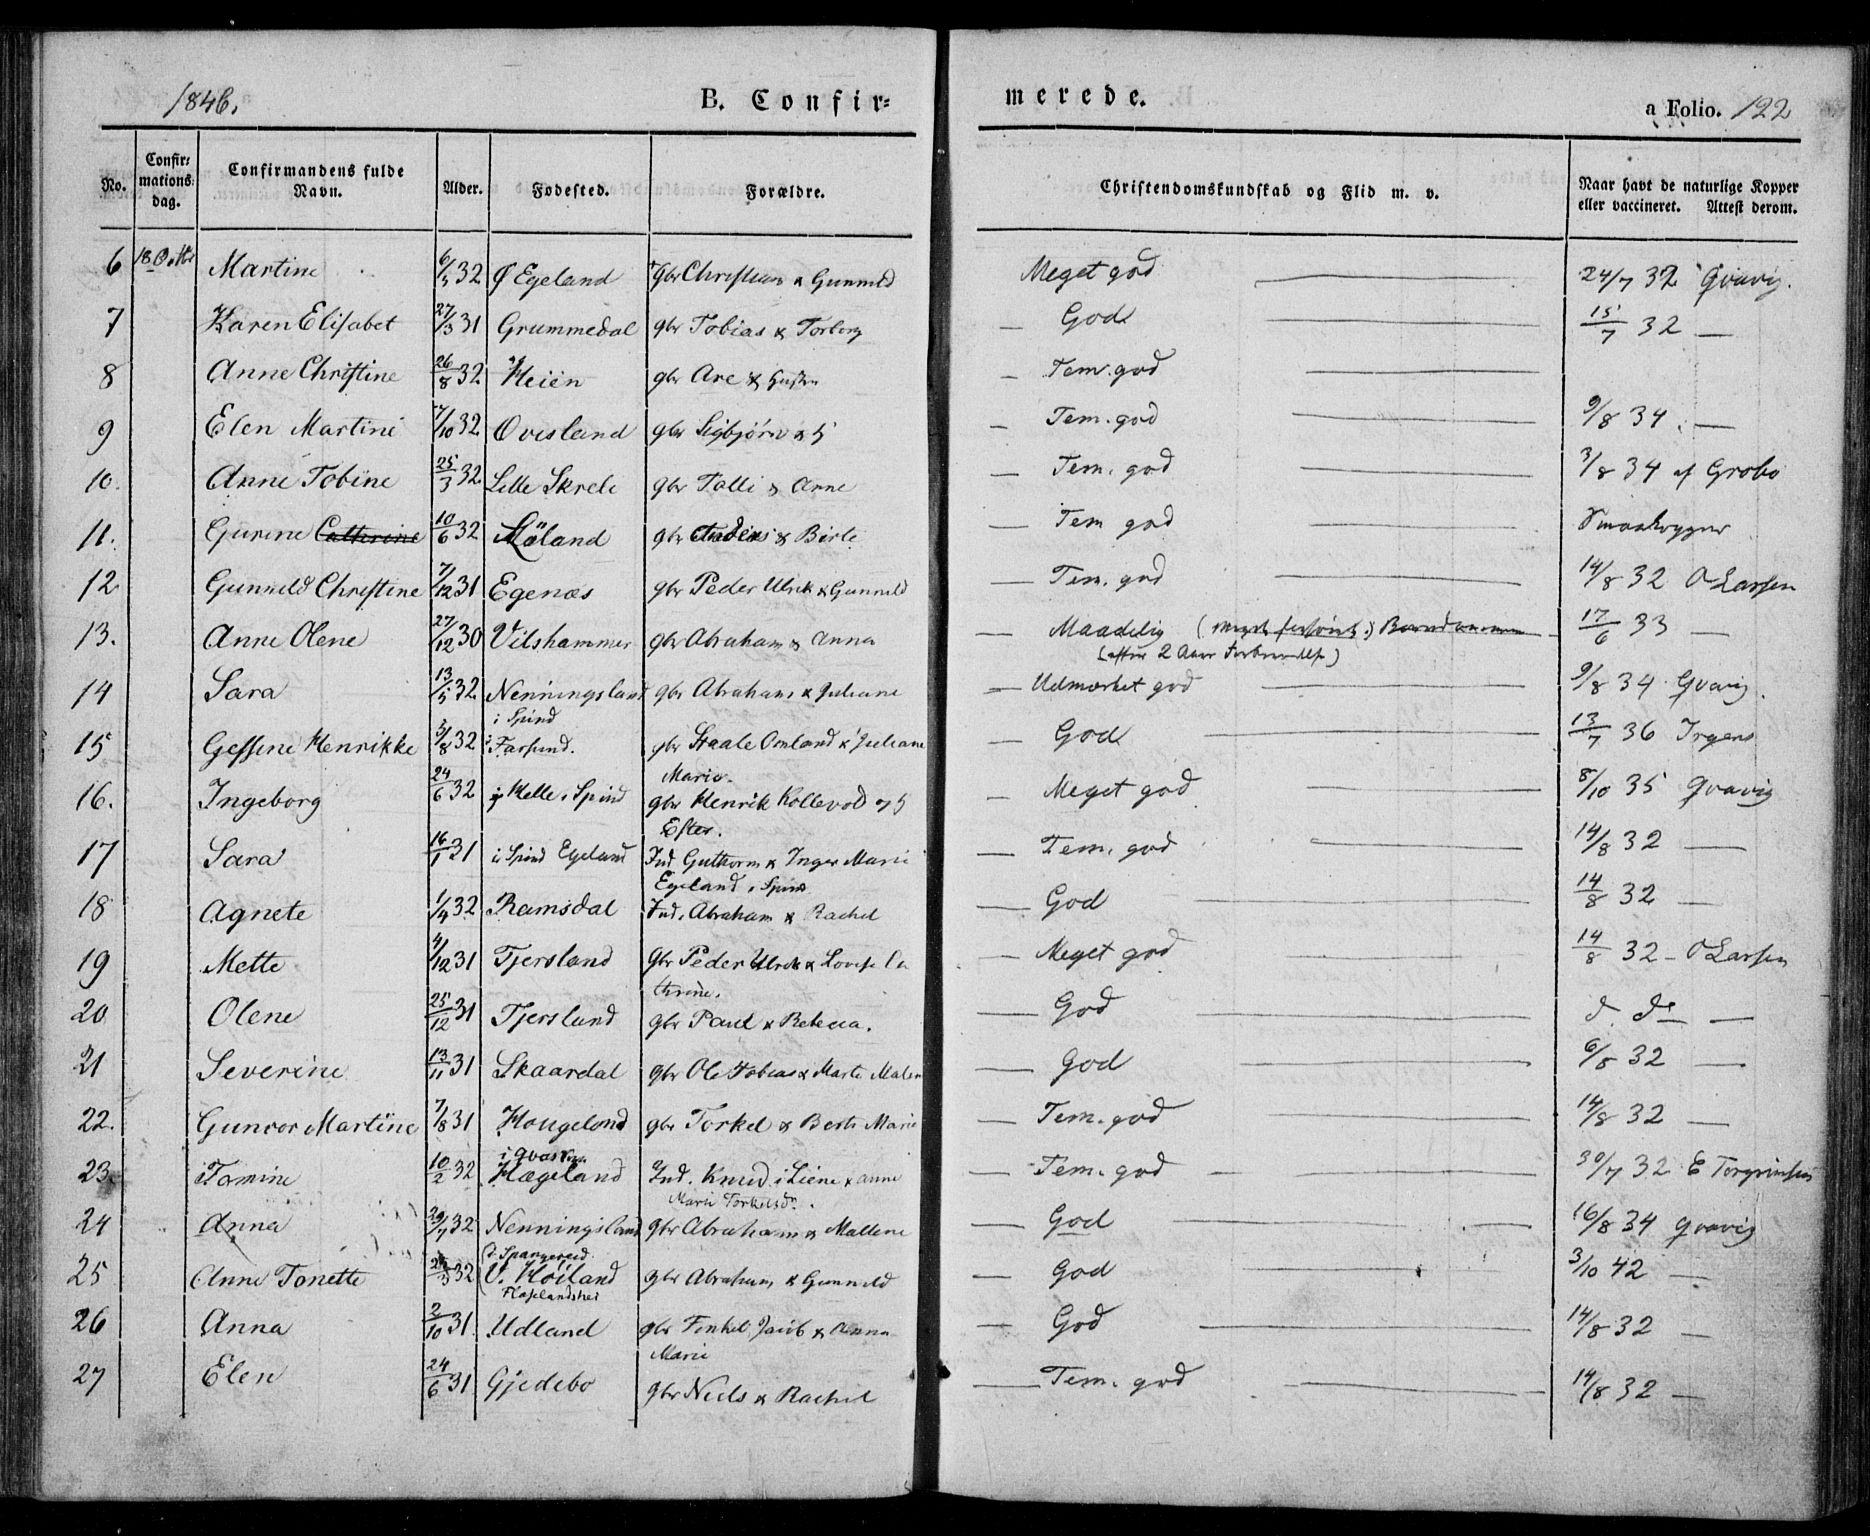 1846.
B. Confir=
merede.
a Folio. 122
No.
Confir= mations= dag.
Confirmandens fulde Navn.
Alder.
Fødested.
Forældre.
Christendomskundskab og Flid m. v.
Naar havt de naturlige Kopper eller vaccineret. Attest derom.
6 18 Octbr Martine 6/5 32 Ø Egeland gbr Christian & Gunnild Meget god 24/7 32 Qvavig.
7 Karen Elisabet 27/3 31 Grummedal gbr Tobias & Torborg — God 15/7 32 —
8 Anne Christine 26/8 32 Heien gbr Are & — Tem. god
9 Elen Martine 7/10 32 Ovisland gbr Sigbjørn — Tem. god 9/8 34 —
10. Anne Tobine 25/3 32 Lille Skrele gbr Talli & Anne — Tem. god 3/8 34 af Grobo
11. Gurine Catherine 10/6 32 Møland gbr & Birte — Tem god Smaakopper
12 Gunnild Christine 7/12 31 Egenæs gbr Peder Ulrik & Gunnild — Tem. god 14/8 32 O Larsen
13. Anne Olene 27/12 30 Vilshammer gbr Abraham & Anna — Maadelig 17/6 33 —
(efter 2 Aars Forberedelse)
14 Sara 13/5 32 Nenningsland gbr Abraham & Juliane — Udmærket god 9/8 34 Qvavig.
i Spind
15 Gessine Henrikke 3/8 32 i Farsund. gbr Staale Omland & Juliane — God 13/7 36 Irgens
Marie.
16. Ingeborg 24/6 32 Helle i Spind gbr Henrik Kollevold — Meget god 8/10 35 Qvavig
Ester.
17 Sara 16/1 31 i Spind Egeland Ind Guthorm & Inger Marie — Tem. god 14/8 32 —
Egeland i Spind
18 Agnete 1/4 32 Ramsdal Ind. Abraham & Rachel — God 14/8 32 —
19 Mette 4/12 31 Tjersland gbr Peder Ulrik & Lovise Ca — Meget god 14/8 32 — O Larsen
thrine.
20 Olene 25/12 31 Tjersland gbr Paul & Rebecca. — God d. do —
21 Severine 13/11 31 Skaardal gbr Ole Tobias & Marte Malen — God 6/8 32 —
22. Gunvor Martine 7/8 31 Hougeland gbr Torkel & Berte Marie — Tem. god 14/8 32 —
23. Tomine 10/2 32 Hægeland Ind. Knud i Liene & Anne — Tem. god 30/7 32 E Torgrimsen
Marie Torkelsdr.
24 Anna 29/7 32 Nenningsland gbr Abraham & Mallene — God — 16/8 34 Qvavig
i Spangereid
25 Anne Tonette 32 V. Høiland gbr Abraham & Gunnild — God 3/10 42 —
26 Anna 2/10 31. Udland gbr Tenkel Jacob & Anna — God 14/8 32 —
Marie
27 Elen 24/6 31 Gjedebo gbr Niels & Rachel — Tem. god 14/8 32 —